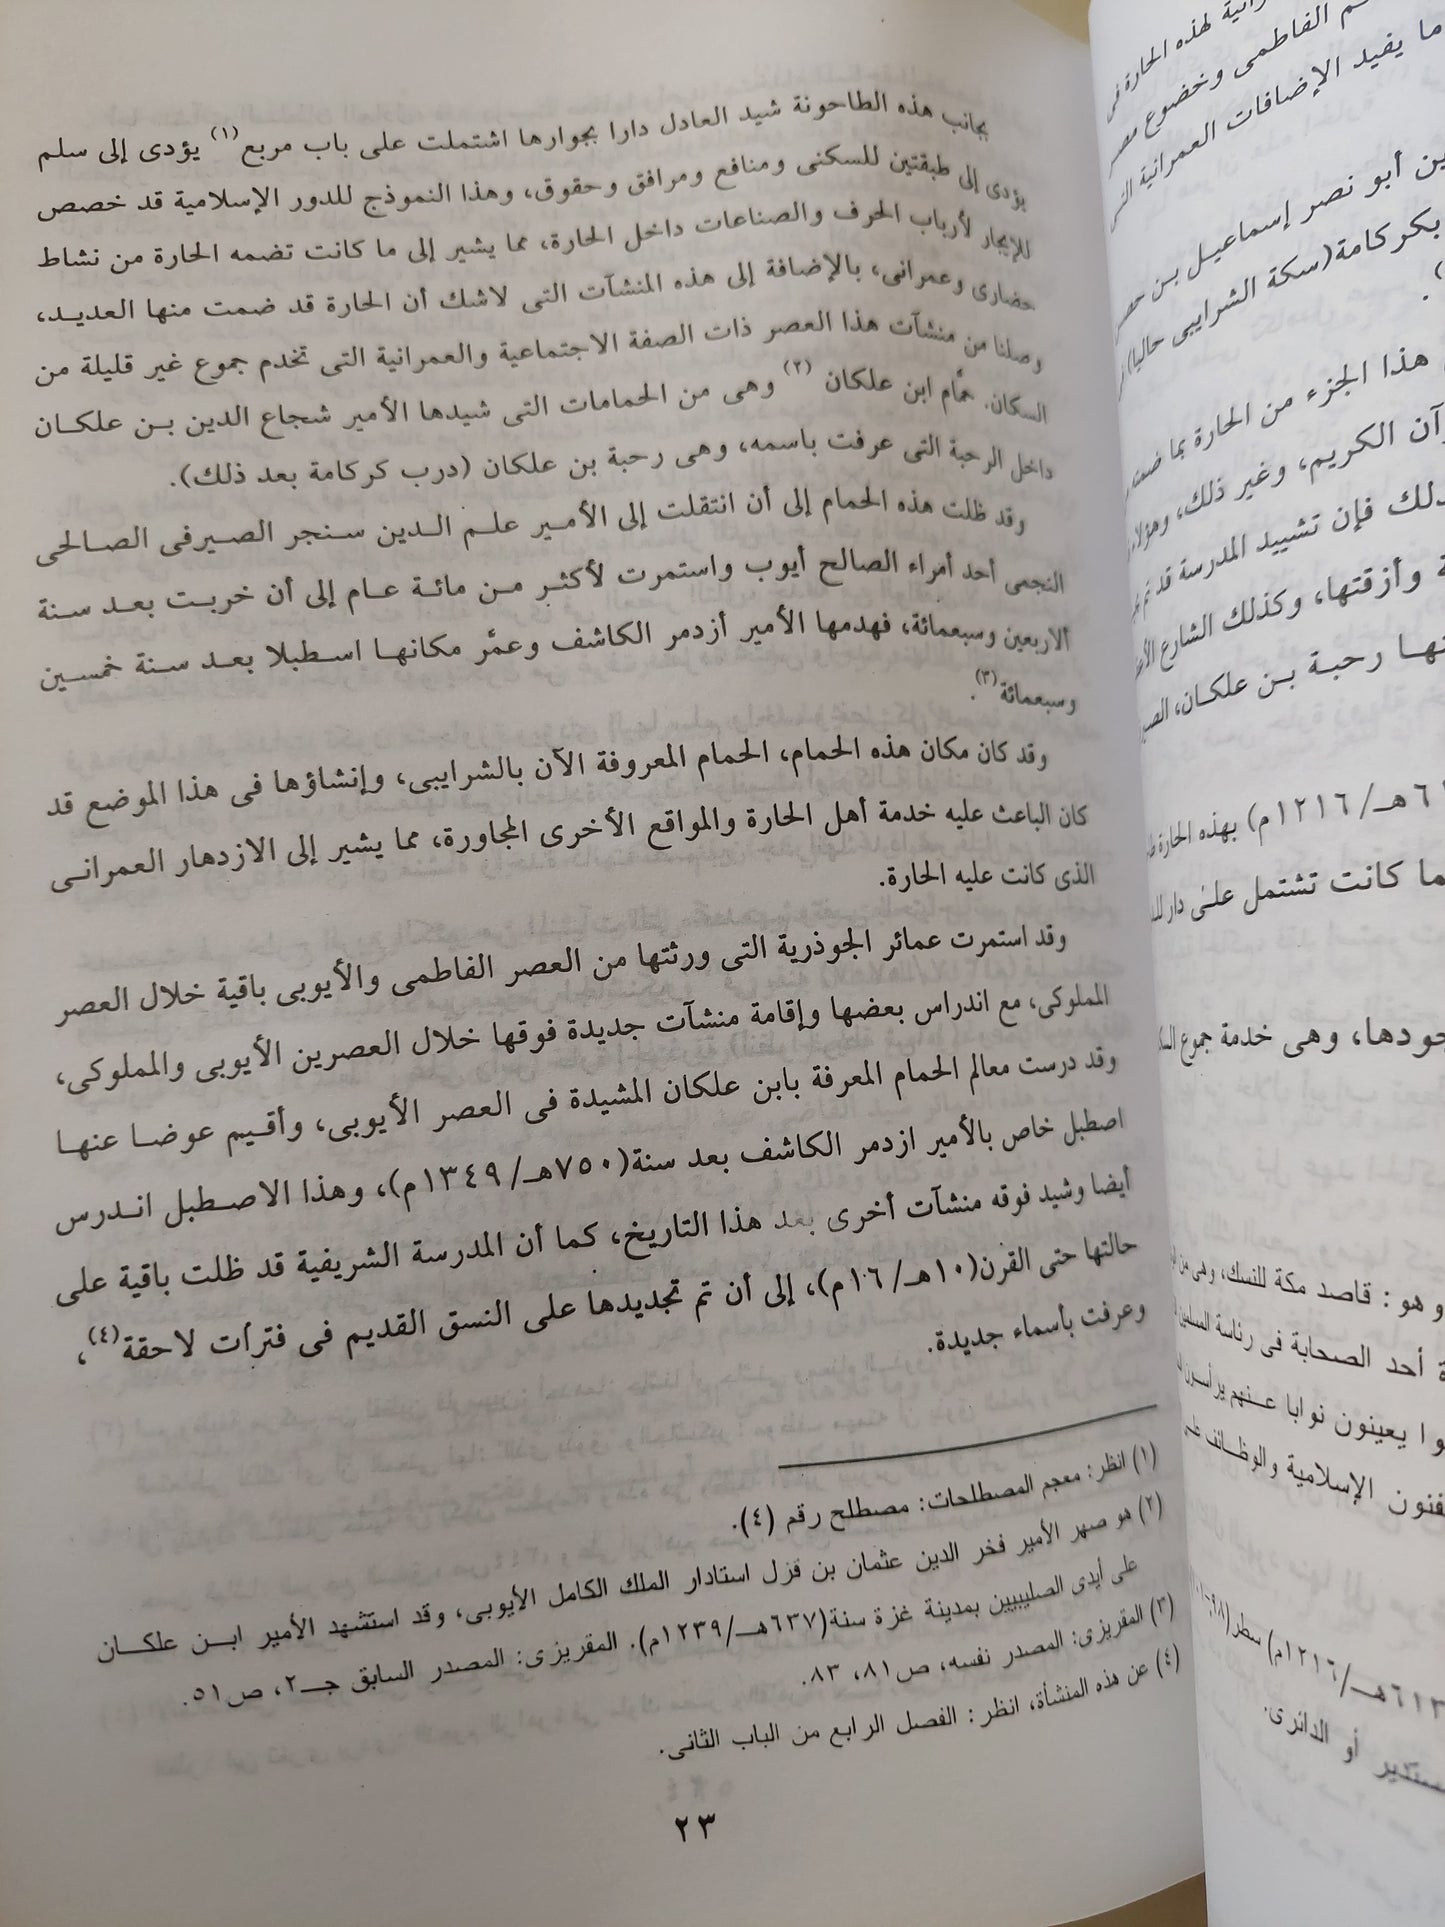 بجانب هذه الطاحونة شيد العادل دارا بجوارها اشتملت على باب مربع(١) يؤدى إلى سلم
يؤدى إلى طبقتين للسكنى ومنافع ومرافق وحقوق، وهذا النموذج للدور الإسلامية قد خصص
للإيجار لأرباب الحرف والصناعات داخل الحارة، مما يشير إلى ما كانت تضمه الحارة من نشاط
حضارى وعمرانى، بالإضافة إلى هذه المنشآت التى لاشك أن الحارة قد ضمت منها العديـد،
وصلنا من منشآت هذا العصر ذات الصفة الاجتماعية والعمرانية التى تخدم جموع غير قليلة من
السكان. حمَّام ابن علكان (٢) وهى من الحمامات التى شيدها الأمير شجاع الدين بـن علكـان
داخل الرحبة التى عرفت باسمه، وهى رحبة بن علكان (درب كركامة بعد ذلك).
وقد ظلت هذه الحمام إلى أن انتقلت إلى الأمـير علـم الـدين سـنجر الصـيرفى الصـالحى
النجمى أحد أمراء الصالح أيوب واستمرت لأكثـر مـن مائـة عـام إلى أن خربـت بعـد سـنة
الاربعين وسبعمائة، فهدمها الأمير أزدمر الكاشف وعمَّر مكانهـا اسـطبلا بعـد سـنة خمسـين
وسبعمائة(٣).
وقد كان مكان هذه الحمام، الحمام المعروفة الآن بالشرايبى، وإنشاؤها فى هذا الموضع قد
كان الباعث عليه خدمة أهل الحارة والمواقع الأخرى المجاورة، مما يشير إلى الازدهار العمرانـى
الذى كانت عليه الحارة.
وقد استمرت عمائر الجوذرية التى ورثتها من العصر الفاطمى والأيوبى باقية خلال العصر
المملوكى، مع اندراس بعضها وإقامة منشآت جديدة فوقها خلال العصرين الأيوبى والمملوكى،
وقد درست معالم الحمام المعرفة بابن علكان المشيدة فى العصر الأيوبى، وأقـيم عوضـا عنهـا
اصطبل خاص بالأمير ازدمر الكاشف بعد سنة(٧٥٠هـ/ ١٣٤٩م)، وهذا الاصـطبل انـدرس
أيضا وشيد فوقه منشآت أخرى بعد هذا التاريخ، كما أن المدرسة الشريفية قد ظلت باقية على
حالتها حتى القرن(١٠هـ/ ١٦م)، إلى أن تم تجديدها على النسق القديم فى فترأت لاحقة(٤)،
وعرفت بأسماء جديدة.
(١) انظر: معجم المصطلحات: مصطلح رقم (٤).
(٢) هو صهر الأمير فخر الدين عثمان بن قزل استادار الملك الكامل الأيوبى، وقد استشهد الأمير ابـن علكـان
على أيدى الصليبيين بمدينة غزة سنة(٦٣٧هـ/١٢٣٩م). المقريزى: المصدر السابق جـ٢، ص٥١.
(٣) المقريزى: المصدر نفسه، ص٨١، ٨٣.
(٤) عن هذه المنشأة، انظر: الفصل الرابع من الباب الثانى.
٢٣
لهذه الحارة فى
الفاطمى وخضوع مصر
ما يفيد الإضافات العمرانية التى
أبو نصر إسماعيـل بـن
بكركامة(سكة الشرايبى حاليا)
هذا الجزء من الحارة بما
الكريم، وغير ذلك، وهؤلاء
فإن تشييد المدرسة قد تم
وأزقتها، وكذلك الشارع
رحبـة بـن علكـان،
١٢١٦م) بهذه الحارة
كانت تشتمل على دار
وهى خدمة جموع
وهو: قاصد مكة للنسك، وهى من
أحد الصحابة فى رئاسة المسلمين
يعينون نوابا عـنهم يرأسـون
الإسلامية والوظـائف
٦١٣هـ/١٢١٦م) سطر
أو الدائرى.